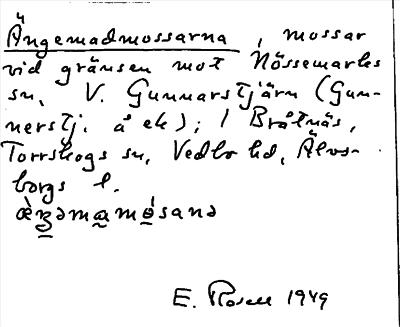 Ängemadmossarna, mossar
vid gränsen mot Nössemarks
sn, V. Gunnarstjärn (Gun-
nerstj. å ek); / Bråtnäs,
Torrskogs sn, Vedbo hd, Älvs-
borgs l.
E. Rosell 1949